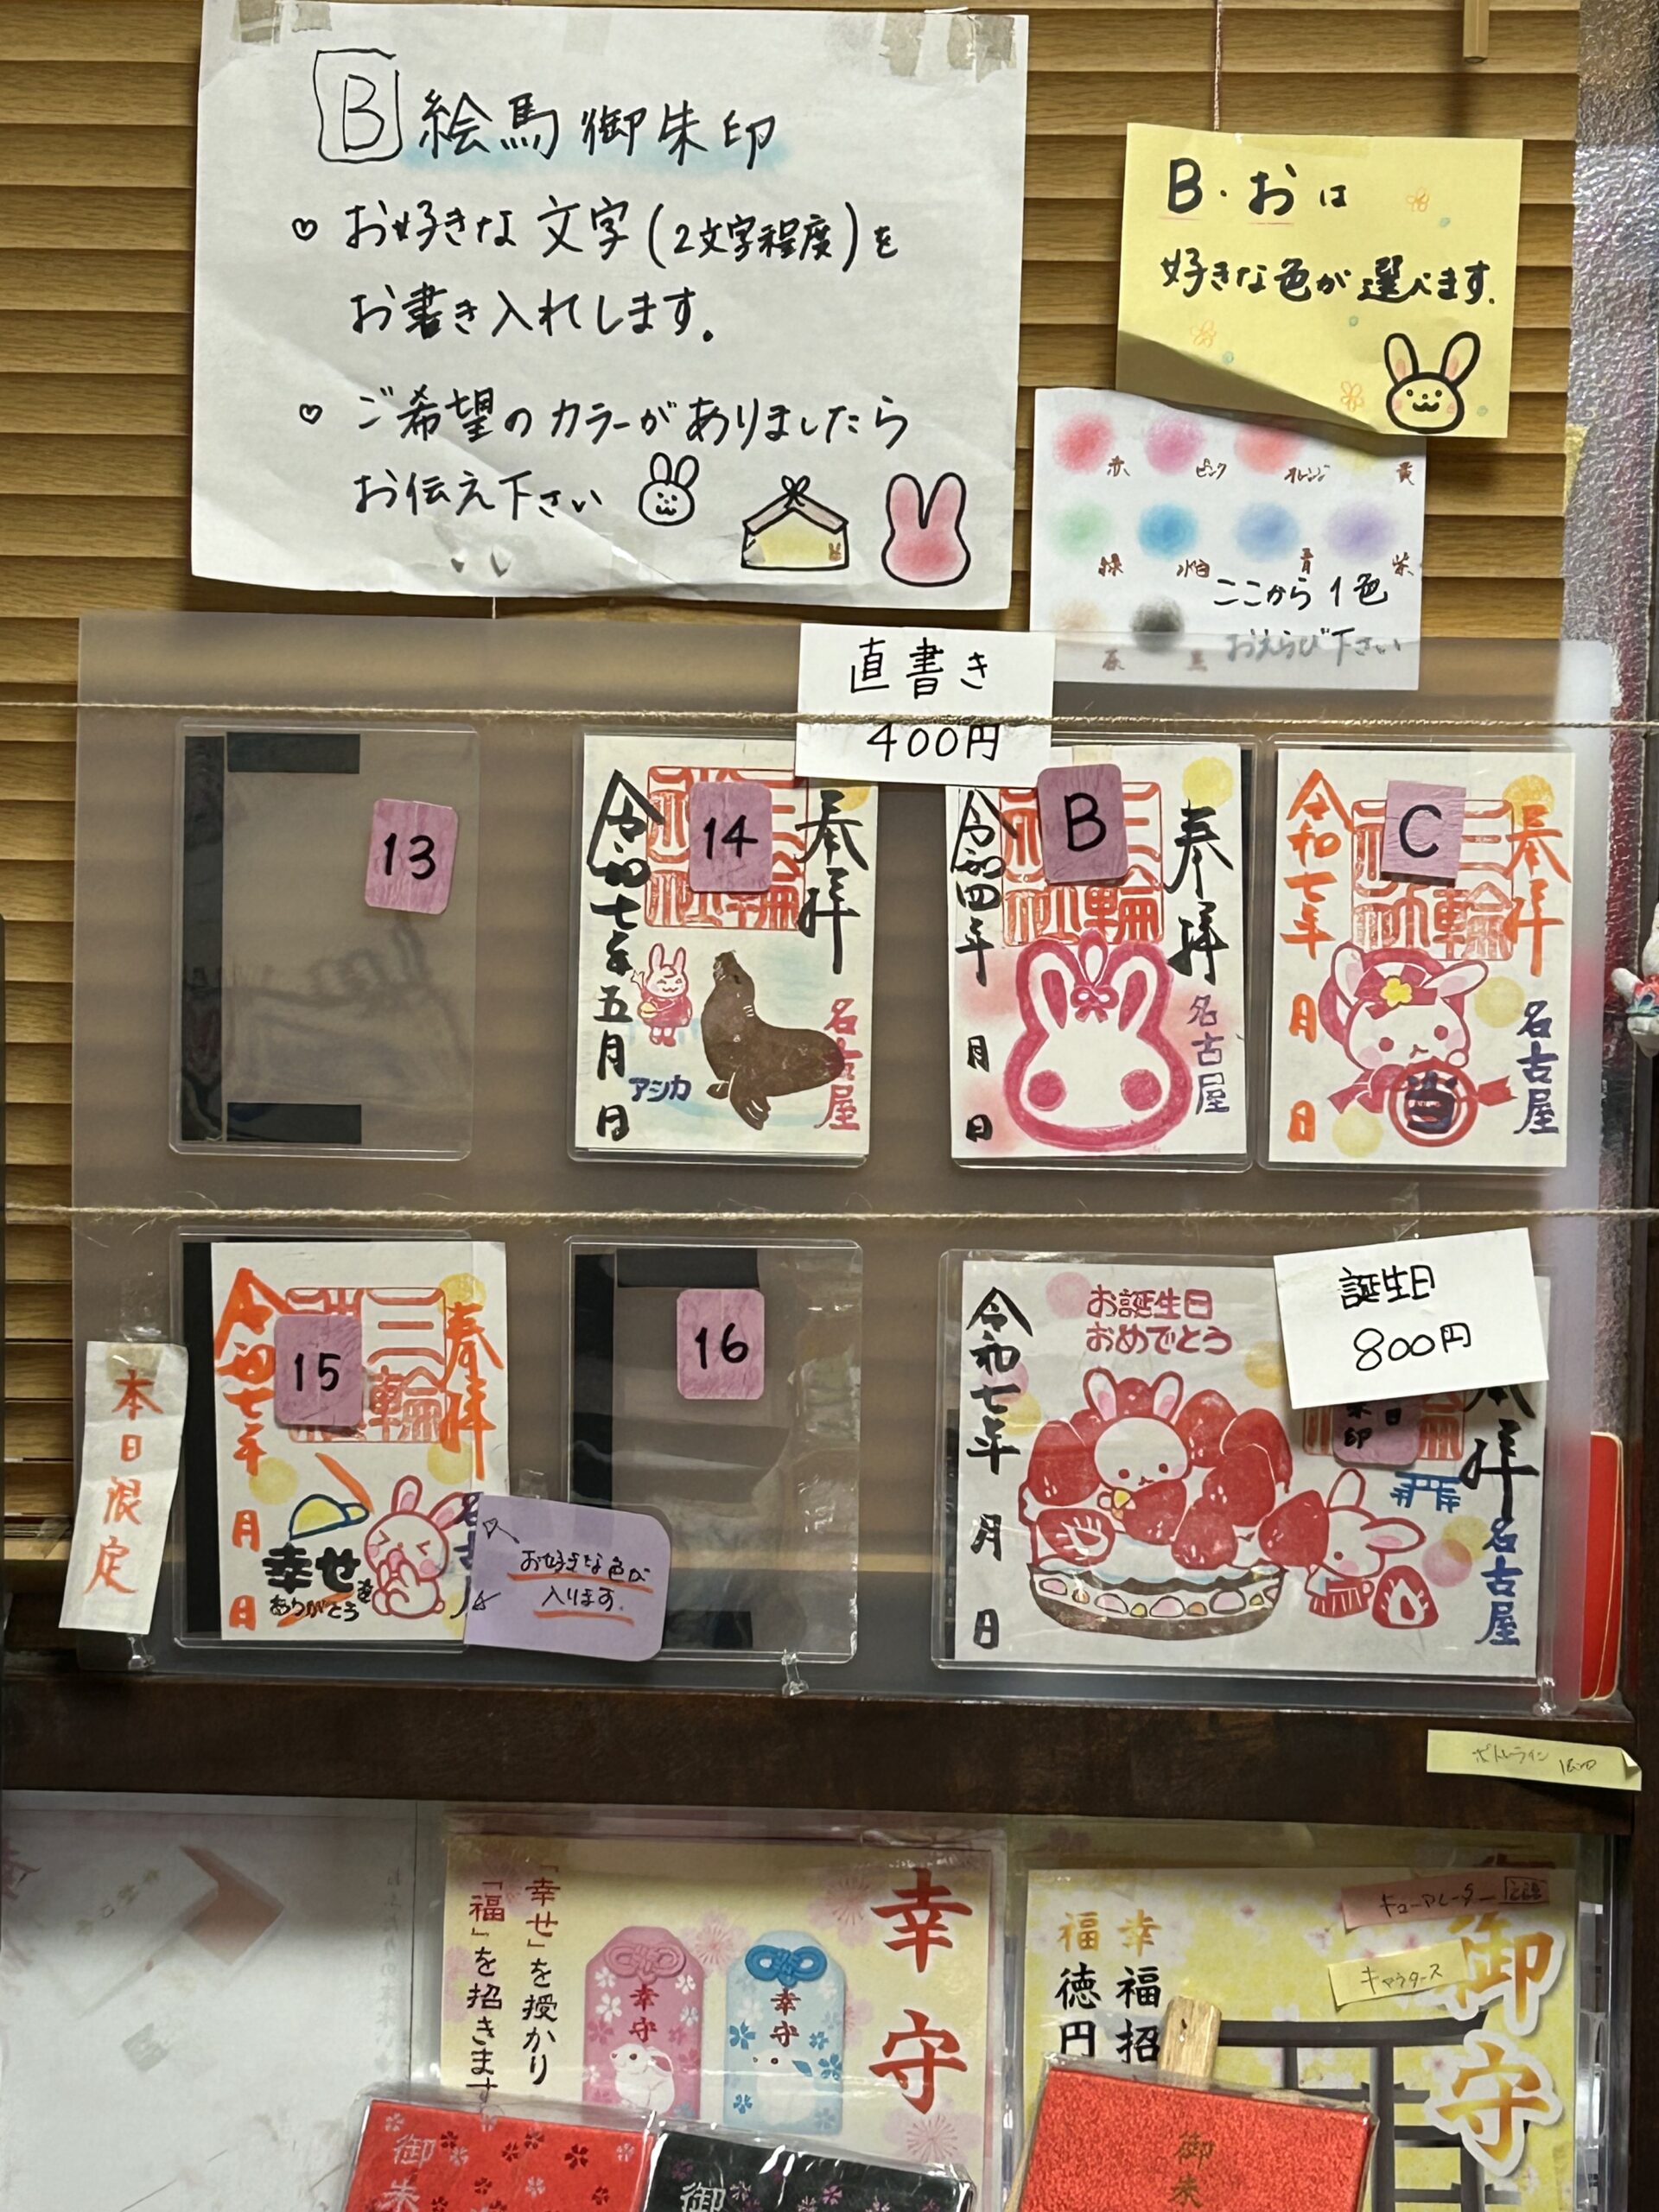 B 絵馬御朱印
♡ お好きな文字(2文字程度)を
お書き入れします。
♡ ご希望のカラーがありましたら
お伝え下さい
B・おは
好きな色が選べます.
赤 ピンク オレンジ 黄
緑 水色 青 紫
ここから1色
おえらび下さい
灰 黒
直書き
400円
13
14
奉拝
令和七年五月 日
アシカ
名古屋
B
奉拝
令和四年 月 日
名古屋
C
奉拝
令和七年 月 日
当
名古屋
本日限定
15
奉拝
令和七年 月 日
幸せを
ありがとう
名古
お好きな色が
入ります.
16
誕生日
800円
お誕生日
おめでとう
奉拝
令和七年 月 日
名古屋
朱印
日
幸守
「幸せ」を授かり
「福」を招きます
幸守
幸守
御守
幸福招
福徳円
キューアレーター
キャラクターズ
御朱
御
御朱